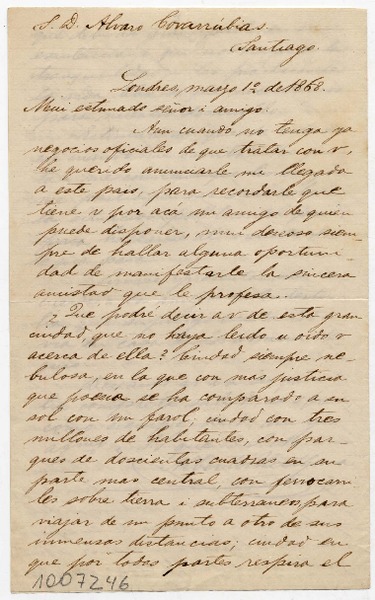 S. D. Alvaro Covarrúbias.
Santiago.
Londres, marzo 1º de 1868.
Mui estimado señor i amigo.
Aun cuando no tenga ya
negocios oficiales de que tratar con v,
he querido anunciarle mi llegada
a este pais, para recordarle que
tiene v por acá un amigo de quien
puede disponer, mui deseoso siem
pre de hallar alguna oportuni
dad de manifestarle la sincera
amistad que le profesa.
¿Que podré decir a v de esta gran
ciudad, que no haya leido u oido v
acerca de ella? Ciudad siempre ne-
bulosa, en la que con mas justicia
que se ha comparado a
sol con un farol; ciudad con tres
millones de habitantes, con par-
ques de doscientas cuadras en su
parte mas central, con ferrocarri
les sobre tierra i subterraneos, para
viajar de un punto a otro de sus
inmensas distancias; ciudad en
que por todas partes respira el
1007246